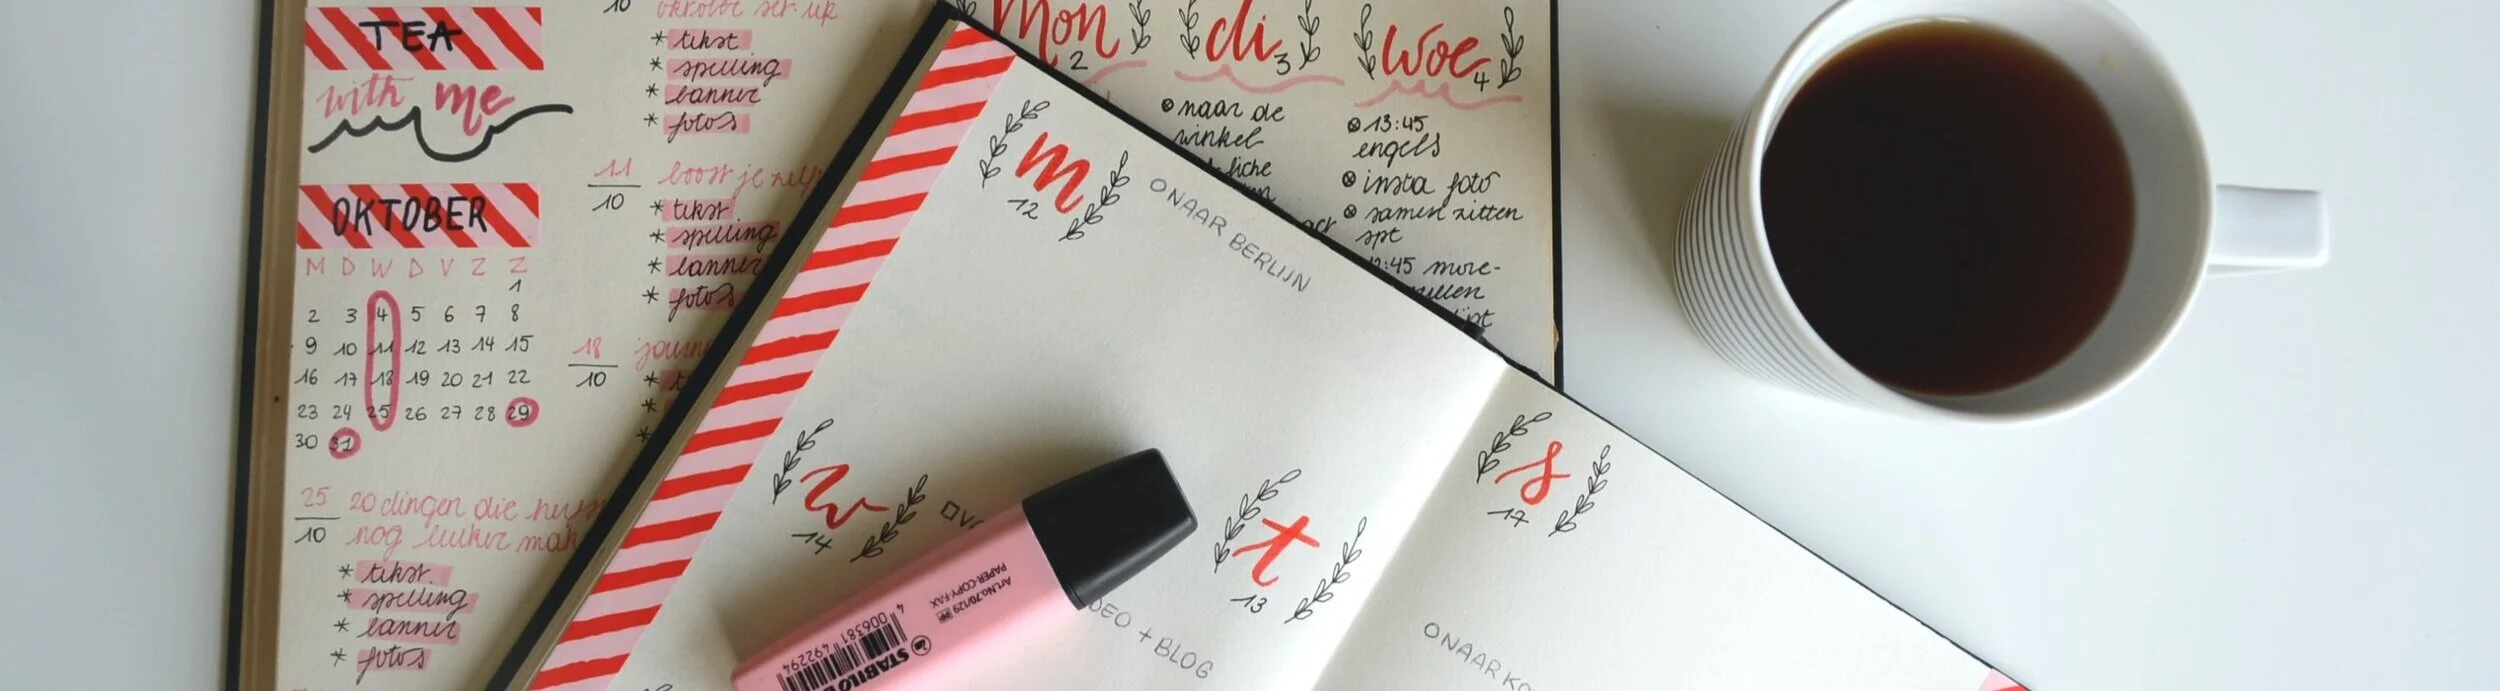 TEA
with me
OKTOBER
M D W D V Z Z
1
2 3 4 5 6 7 8
9 10 11 12 13 14 15
16 17 18 19 20 21 22
23 24 25 26 27 28 29
30 31
25
10
20 dingen die
nog leuker
* tekst
* spelling
* banner
* foto's
10
oktober set-up
* tekst
* spelling
* banner
* foto's
11
10
boost je
* tekst
* spelling
* banner
* foto's
18
10
*
*
*
Mon
2
di
3
naar de
winkel
woe
4
13:45
engels
insta foto
samen zitten
spt
12:45
m
12
NAAR BERLIJN
w
14
+ BLOG
t
13
s
17
NAAR
STABILO
Art.No.70/129
PAPER-COPY-FAX
4 006381 492294